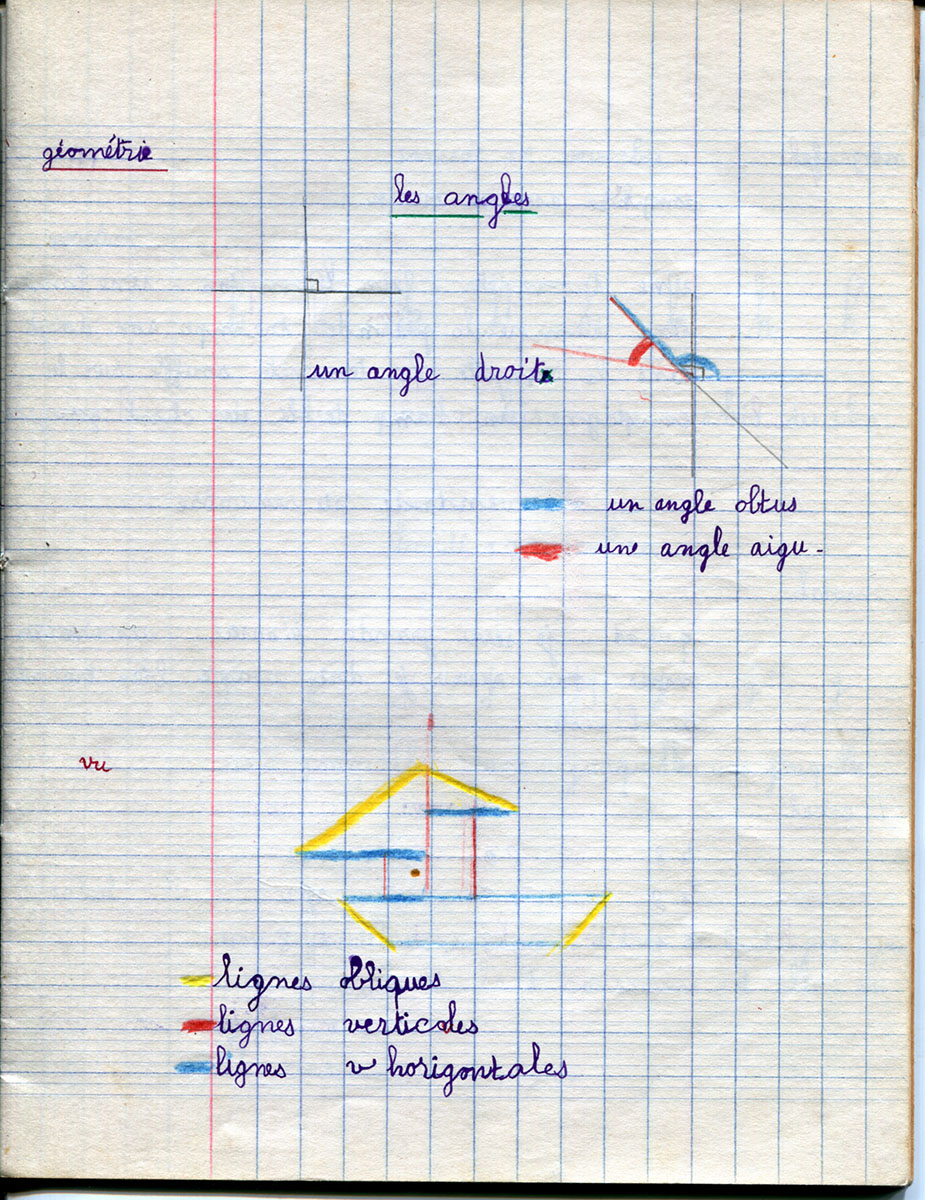 géométrie
les angles
un angle droit
un angle obtus
une angle aigu -
vu
lignes obliques
lignes verticales
lignes v horigontales